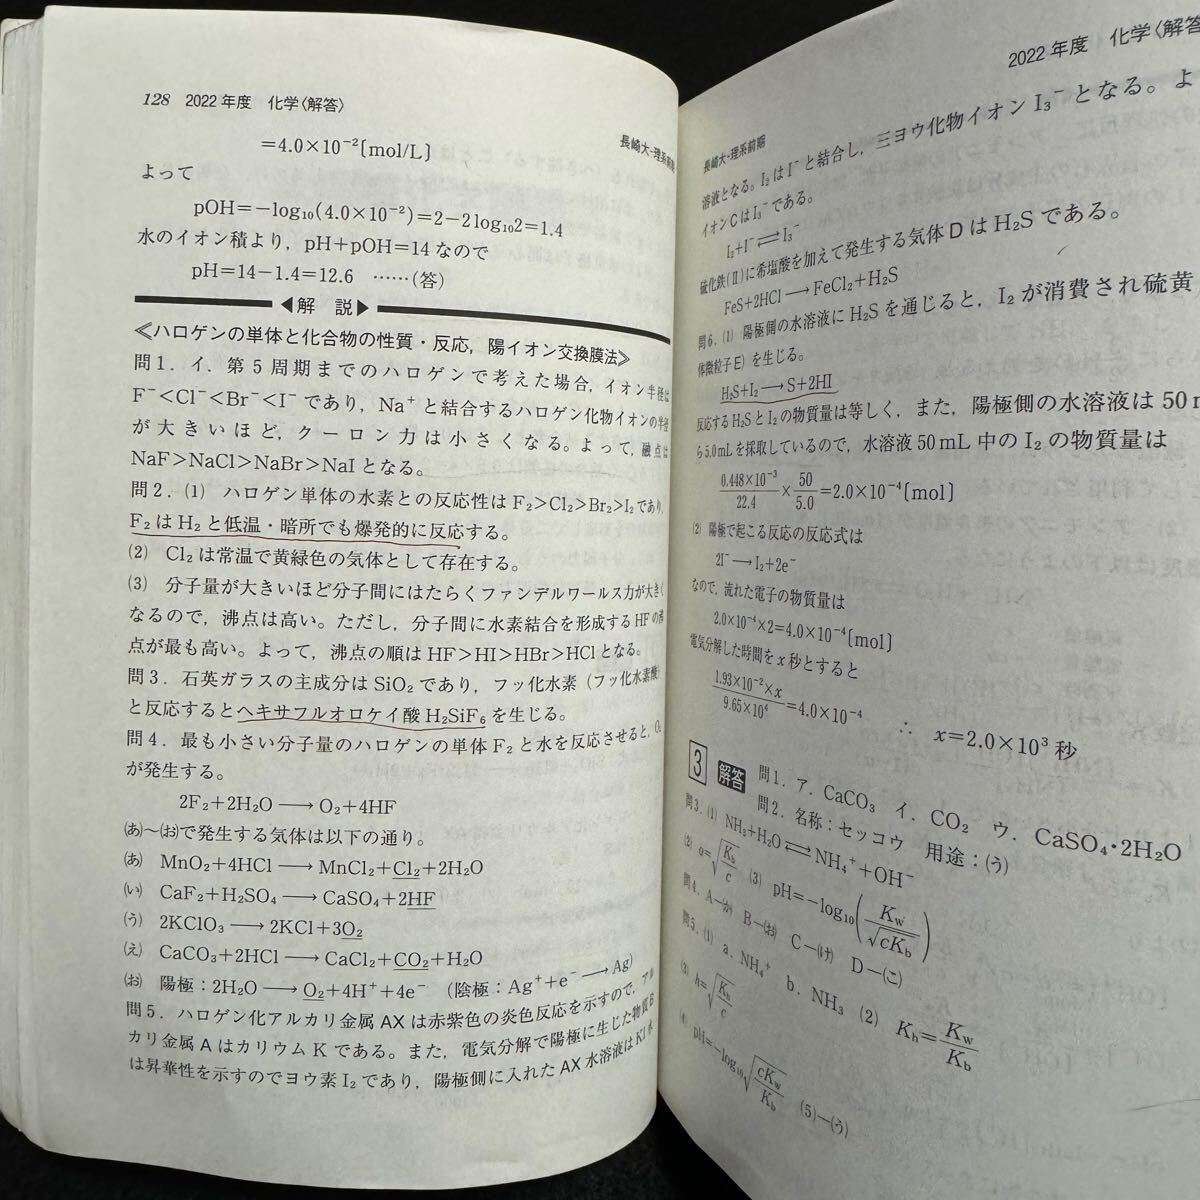 128 2022年度 化学〈解答〉
長崎大-理系前期
=4.0×10⁻²〔mol/L〕
よって
pOH=−log₁₀(4.0×10⁻²)=2−2log₁₀2=1.4
水のイオン積より，pH+pOH=14なので
pH=14−1.4=12.6 ……(答)
◀解 説▶
≪ハロゲンの単体と化合物の性質・反応，陽イオン交換膜法≫
問1．イ．第5周期までのハロゲンで考えた場合，イオン半径は
F⁻<Cl⁻<Br⁻<I⁻であり，Na⁺と結合するハロゲン化物イオンの半径
が大きいほど，クーロン力は小さくなる。よって，融点は
NaF>NaCl>NaBr>NaIとなる。
問2．(1) ハロゲン単体の水素との反応性はF₂>Cl₂>Br₂>I₂であり，
F₂はH₂と低温・暗所でも爆発的に反応する。
(2) Cl₂は常温で黄緑色の気体として存在する。
(3) 分子量が大きいほど分子間にはたらくファンデルワールス力が大きく
なるので，沸点は高い。ただし，分子間に水素結合を形成するHFの沸
点が最も高い。よって，沸点の順はHF>HI>HBr>HClとなる。
問3．石英ガラスの主成分はSiO₂であり，フッ化水素（フッ化水素酸）
と反応するとヘキサフルオロケイ酸H₂SiF₆を生じる。
問4．最も小さい分子量のハロゲンの単体F₂と水を反応させると，O₂
が発生する。
2F₂+2H₂O⟶O₂+4HF
(あ)～(お)で発生する気体は以下の通り。
(あ) MnO₂+4HCl⟶MnCl₂+Cl₂+2H₂O
(い) CaF₂+H₂SO₄⟶CaSO₄+2HF
(う) 2KClO₃⟶2KCl+3O₂
(え) CaCO₃+2HCl⟶CaCl₂+CO₂+H₂O
(お) 陽極：2H₂O⟶O₂+4H⁺+4e⁻ （陰極：Ag⁺+e⁻⟶Ag）
問5．ハロゲン化アルカリ金属AXは赤紫色の炎色反応を示すので，アル
カリ金属AはカリウムKである。また，電気分解で陽極に生じた物質B
は昇華性を示すのでヨウ素I₂であり，陽極側に入れたAX水溶液はKI水
2022年度 化学〈解答
長崎大-理系前期
溶液となる。I₂はI⁻と結合し，三ヨウ化物イオンI₃⁻となる。よ
イオンCはI₃⁻である。
I₂+I⁻⇄I₃⁻
硫化鉄(Ⅱ)に希塩酸を加えて発生する気体DはH₂Sである。
FeS+2HCl⟶FeCl₂+H₂S
問6．(1) 陽極側の水溶液にH₂Sを通じると，I₂が消費され硫黄
体微粒子E)を生じる。
H₂S+I₂⟶S+2HI
反応するH₂SとI₂の物質量は等しく，また，陽極側の水溶液は50m
ら5.0mLを採取しているので，水溶液50mL中のI₂の物質量は
0.448×10⁻³/22.4×50/5.0=2.0×10⁻⁴〔mol〕
(2) 陽極で起こる反応の反応式は
2I⁻⟶I₂+2e⁻
なので，流れた電子の物質量は
2.0×10⁻⁴×2=4.0×10⁻⁴〔mol〕
電気分解した時間をx秒とすると
1.93×10⁻²×x/9.65×10⁴=4.0×10⁻⁴ ∴ x=2.0×10³秒
3 解答 問1．ア．CaCO₃ イ．CO₂ ウ．CaSO₄・2H₂O
問2．名称：セッコウ 用途：(う)
問3．(1) NH₃+H₂O⇄NH₄⁺+OH⁻
(2) α=√(K_b/c) (3) pH=−log₁₀(K_w/√(cK_b))
問4．A−(か) B−(お) C−(け) D−(こ)
問5．(1) a．NH₄⁺ b．NH₃ (2) K_h=K_w/K_b
(3) h=√(K_h/c)
(4) pH=−log₁₀√(cK_w/K_b) (5)−(う)